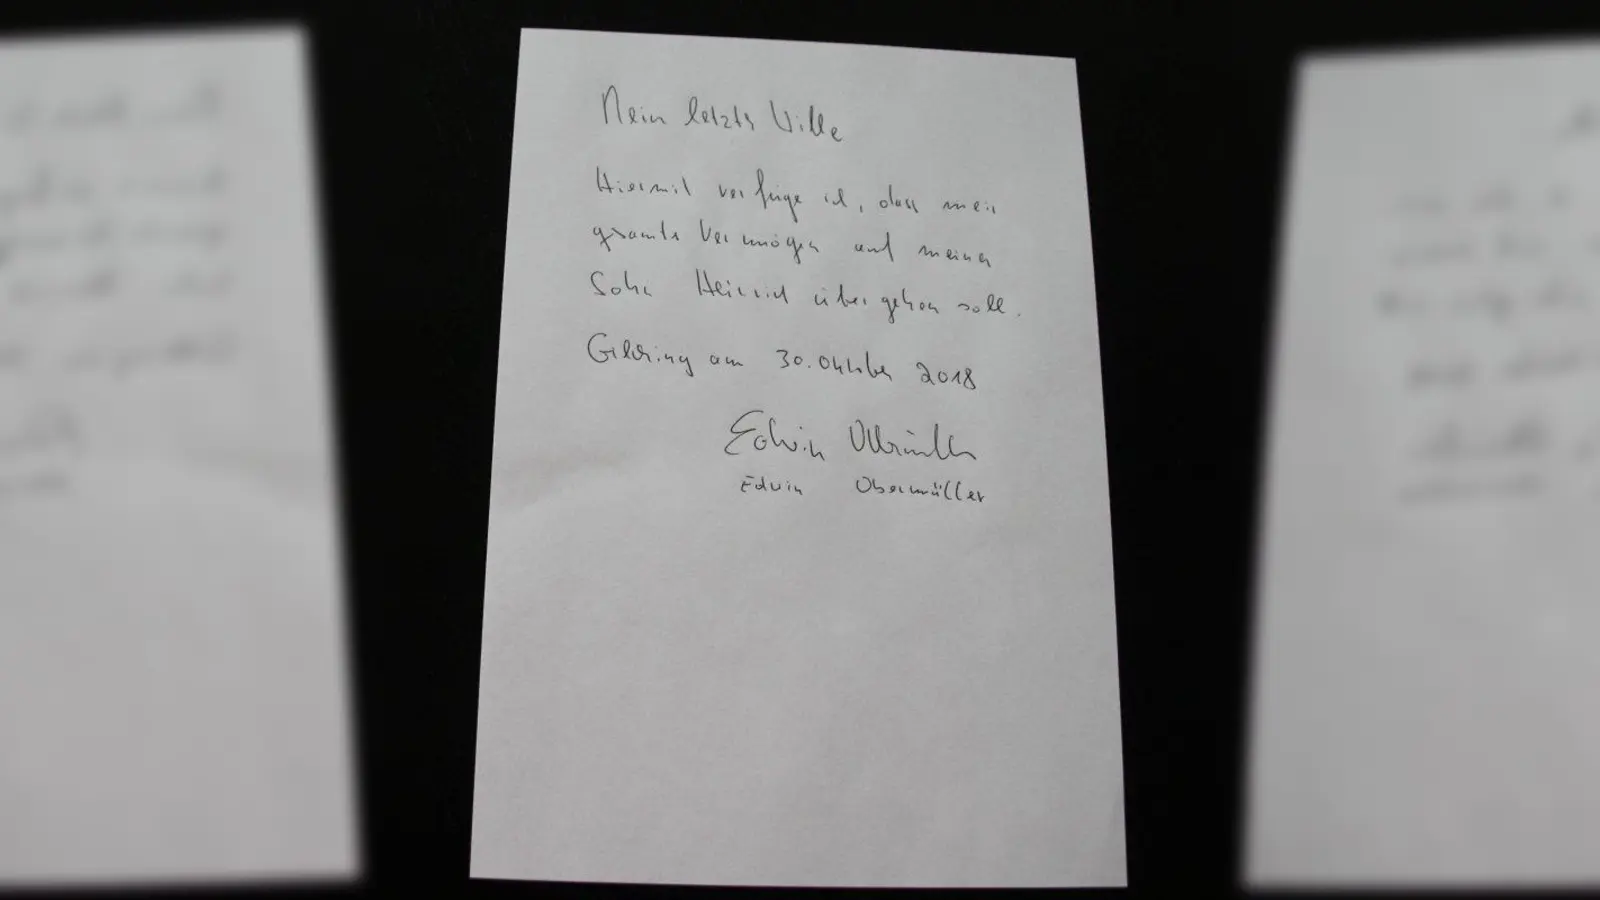 Mein letzter Wille
Hiermit verfüge ich, dass mein
gesamtes Vermögen auf meinen
Sohn Heinrich übergehen soll.
am 30. Oktober 2018
Edwin Obermüller
Edwin Obermüller